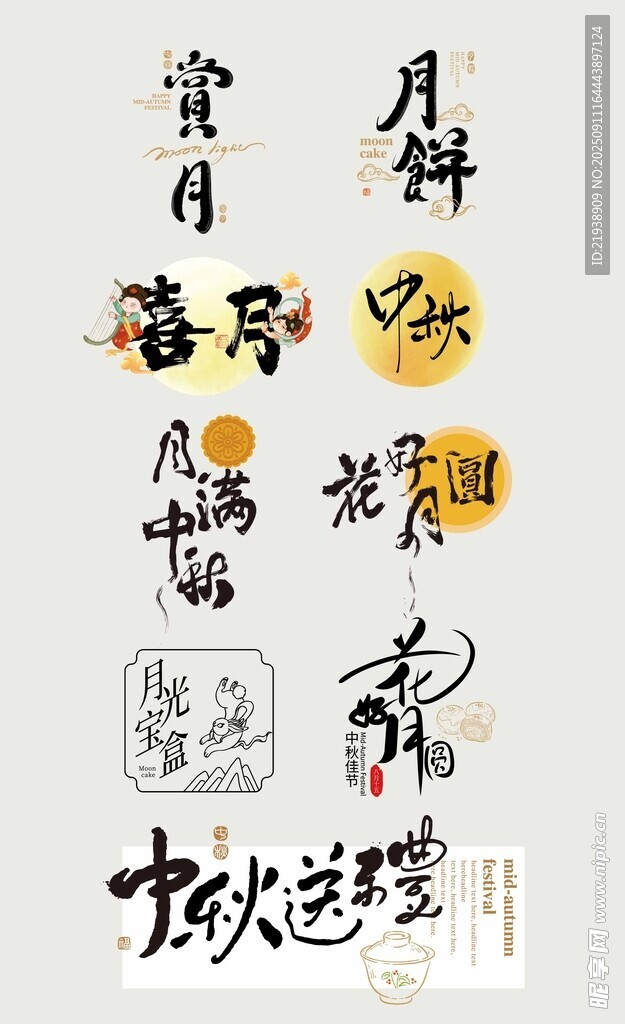 中秋
HAPPY
MID-AUTUMN
FESTIVAL
賞月
moon light
月餅
HAPPY
MID-AUTUMN
FESTIVAL
moon
cake
喜月
中秋
月满
中秋
花好月圓
月光
宝盒
Moon
cake
花好月圆
中秋佳节
Mid-Autumn Festival
八月十五
中秋
中秋送禮
mid-autumn
festival
headline text here, headline text
hereheadline
text here, headline text here,
headline text
ID:21938909 NO:20250911164443897124
昵享网 www.nipic.cn